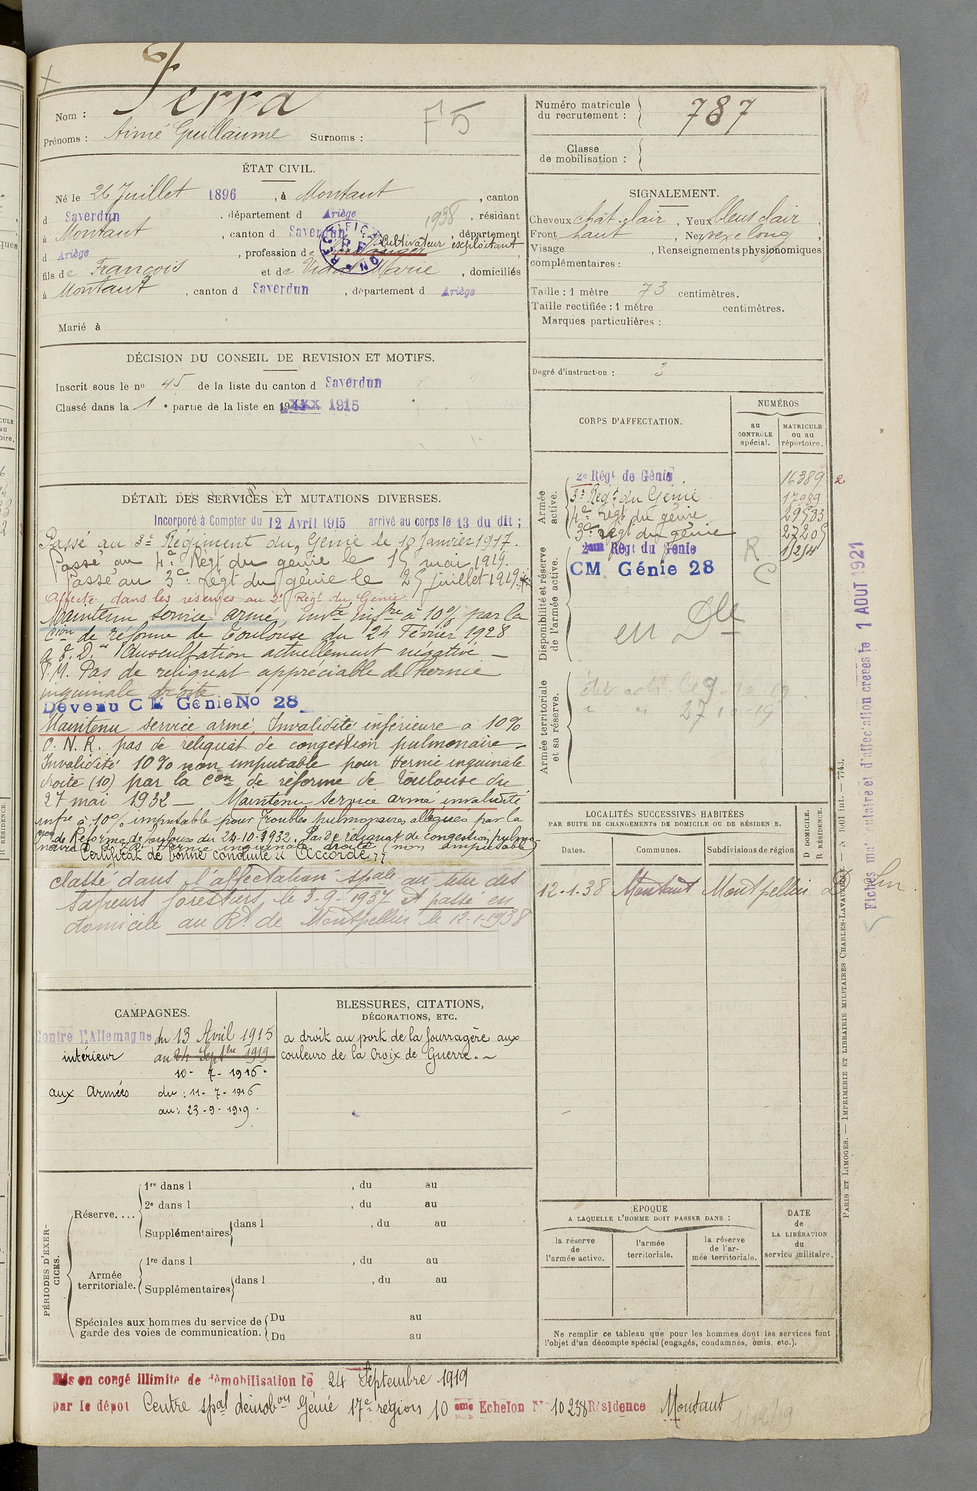 Nom : Ferra
Prénoms : Aimé Guillaume Surnoms :
F5
ÉTAT CIVIL.
Né le 26 Juillet 1896, à Montaut, canton
d Saverdun, département d Ariège 1938, résidant
à Montaut, canton d Saverdun, département
d Ariège, profession de Cultivateur exploitant
fils de François et de Vidal Marie, domiciliés
à Montaut, canton d Saverdun, département d Ariège
Marié à
DÉCISION DU CONSEIL DE REVISION ET MOTIFS.
Inscrit sous le no 45 de la liste du canton d Saverdun
Classé dans la 1e partie de la liste en 19 XXX 1915
DÉTAIL DES SERVICES ET MUTATIONS DIVERSES.
Incorporé à Compter du 12 Avril 1915 arrivé au corps le 13 du dit ;
Passé au 3e Régiment du Génie le 18 Janvier 1917.
Passé au 4e Règt du génie le 15 mai 1919.
Passé au 3e Règt du génie le 25 juillet 1919.
Affecté dans les réserves au 2e Régt du Génie
Maintenu service armé, invté infre à 10% par la
Cion de réforme de Toulouse du 24 Février 1928
Auscultation actuellement négative —
P.M. Pas de reliquat appréciable de hernie
inguinale droite
Devenu CM Génie No 28
Maintenu service armé, Invalidité inférieure à 10%
O.N.R. pas de reliquat de congestion pulmonaire —
Invalidité 10% non imputable pour hernie inguinale
droite (10) par la Con de réforme de Toulouse du
27 mai 1932 — Maintenu service armé invalidité
infre à 10% imputable pour troubles pulmonaires allégués par la
Con de Réforme de Toulouse du 24-10-1932. Pas de reliquat de congestion pulmo-
naire. hernie inguinale droite (non imputable)
Certificat de bonne conduite "Accordé"
Classé dans l'affectation spale au titre des
Sapeurs forestiers, le 3-9-1937 et passé en
domicile au Rt de Montpellier le 12-1-1938
CAMPAGNES.
Contre l'Allemagne du 13 Avril 1915
intérieur au 24 Septbre 1919
10 - 7 - 1916.
aux Armées du : 11 - 7 - 1916
au : 23 - 9 - 1919.
BLESSURES, CITATIONS,
DÉCORATIONS, ETC.
a droit au port de la fourragère aux
couleurs de la Croix de Guerre. —
PÉRIODES D'EXERCICES.
Réserve....
1re dans l , du au
2e dans l , du au
Supplémentaires dans l , du au
Armée territoriale.
1re dans l , du au
Supplémentaires dans l , du au
Spéciales aux hommes du service de
garde des voies de communication.
Du au
Du au
Mis en congé illimité de démobilisation le 24 Septembre 1919
par le dépôt Centre spal démobon Génie 17e région 10 ème Echelon No 10238 Résidence Montaut
Numéro matricule
du recrutement : 787
Classe
de mobilisation :
SIGNALEMENT.
Cheveux chât. clair, Yeux bleus clair
Front haut, Nez vexe long,
Visage , Renseignements physionomiques
complémentaires :
Taille : 1 mètre 73 centimètres.
Taille rectifiée : 1 mètre centimètres.
Marques particulières :
Degré d'instruction : 3
CORPS D'AFFECTATION.
NUMÉROS
au
CONTRÔLE
spécial.
MATRICULE
ou au
répertoire.
Armée
active.
2e Régt de Génie 16389
3e Régt du Génie 17989
4e Règt du génie 29533
3e Règt du génie 27205
Disponibilité et réserve
de l'armée active.
2ème Régt du Génie
CM Génie 28
R
C
en Dle
Armée territoriale
et sa réserve.
LOCALITÉS SUCCESSIVES HABITÉES
PAR SUITE DE CHANGEMENTS DE DOMICILE OU DE RÉSIDENCE.
Dates. Communes. Subdivisions de région
D DOMICILE.
R RÉSIDENCE.
12-1-38 Montaut Montpellier D
ÉPOQUE
A LAQUELLE L'HOMME DOIT PASSER DANS :
la réserve
de
l'armée active.
l'armée
territoriale.
la réserve
de l'ar-
mée territoriale.
DATE
de
LA LIBÉRATION
du
service militaire.
Ne remplir ce tableau que pour les hommes dont les services font
l'objet d'un décompte spécial (engagés, condamnés, omis, etc.).
PARIS ET LIMOGES. — IMPRIMERIE ET LIBRAIRIE MILITAIRES CHARLES-LAVAUZELLE.
Fiches matriculaire et d'affectation créées le 1 AOUT 1921